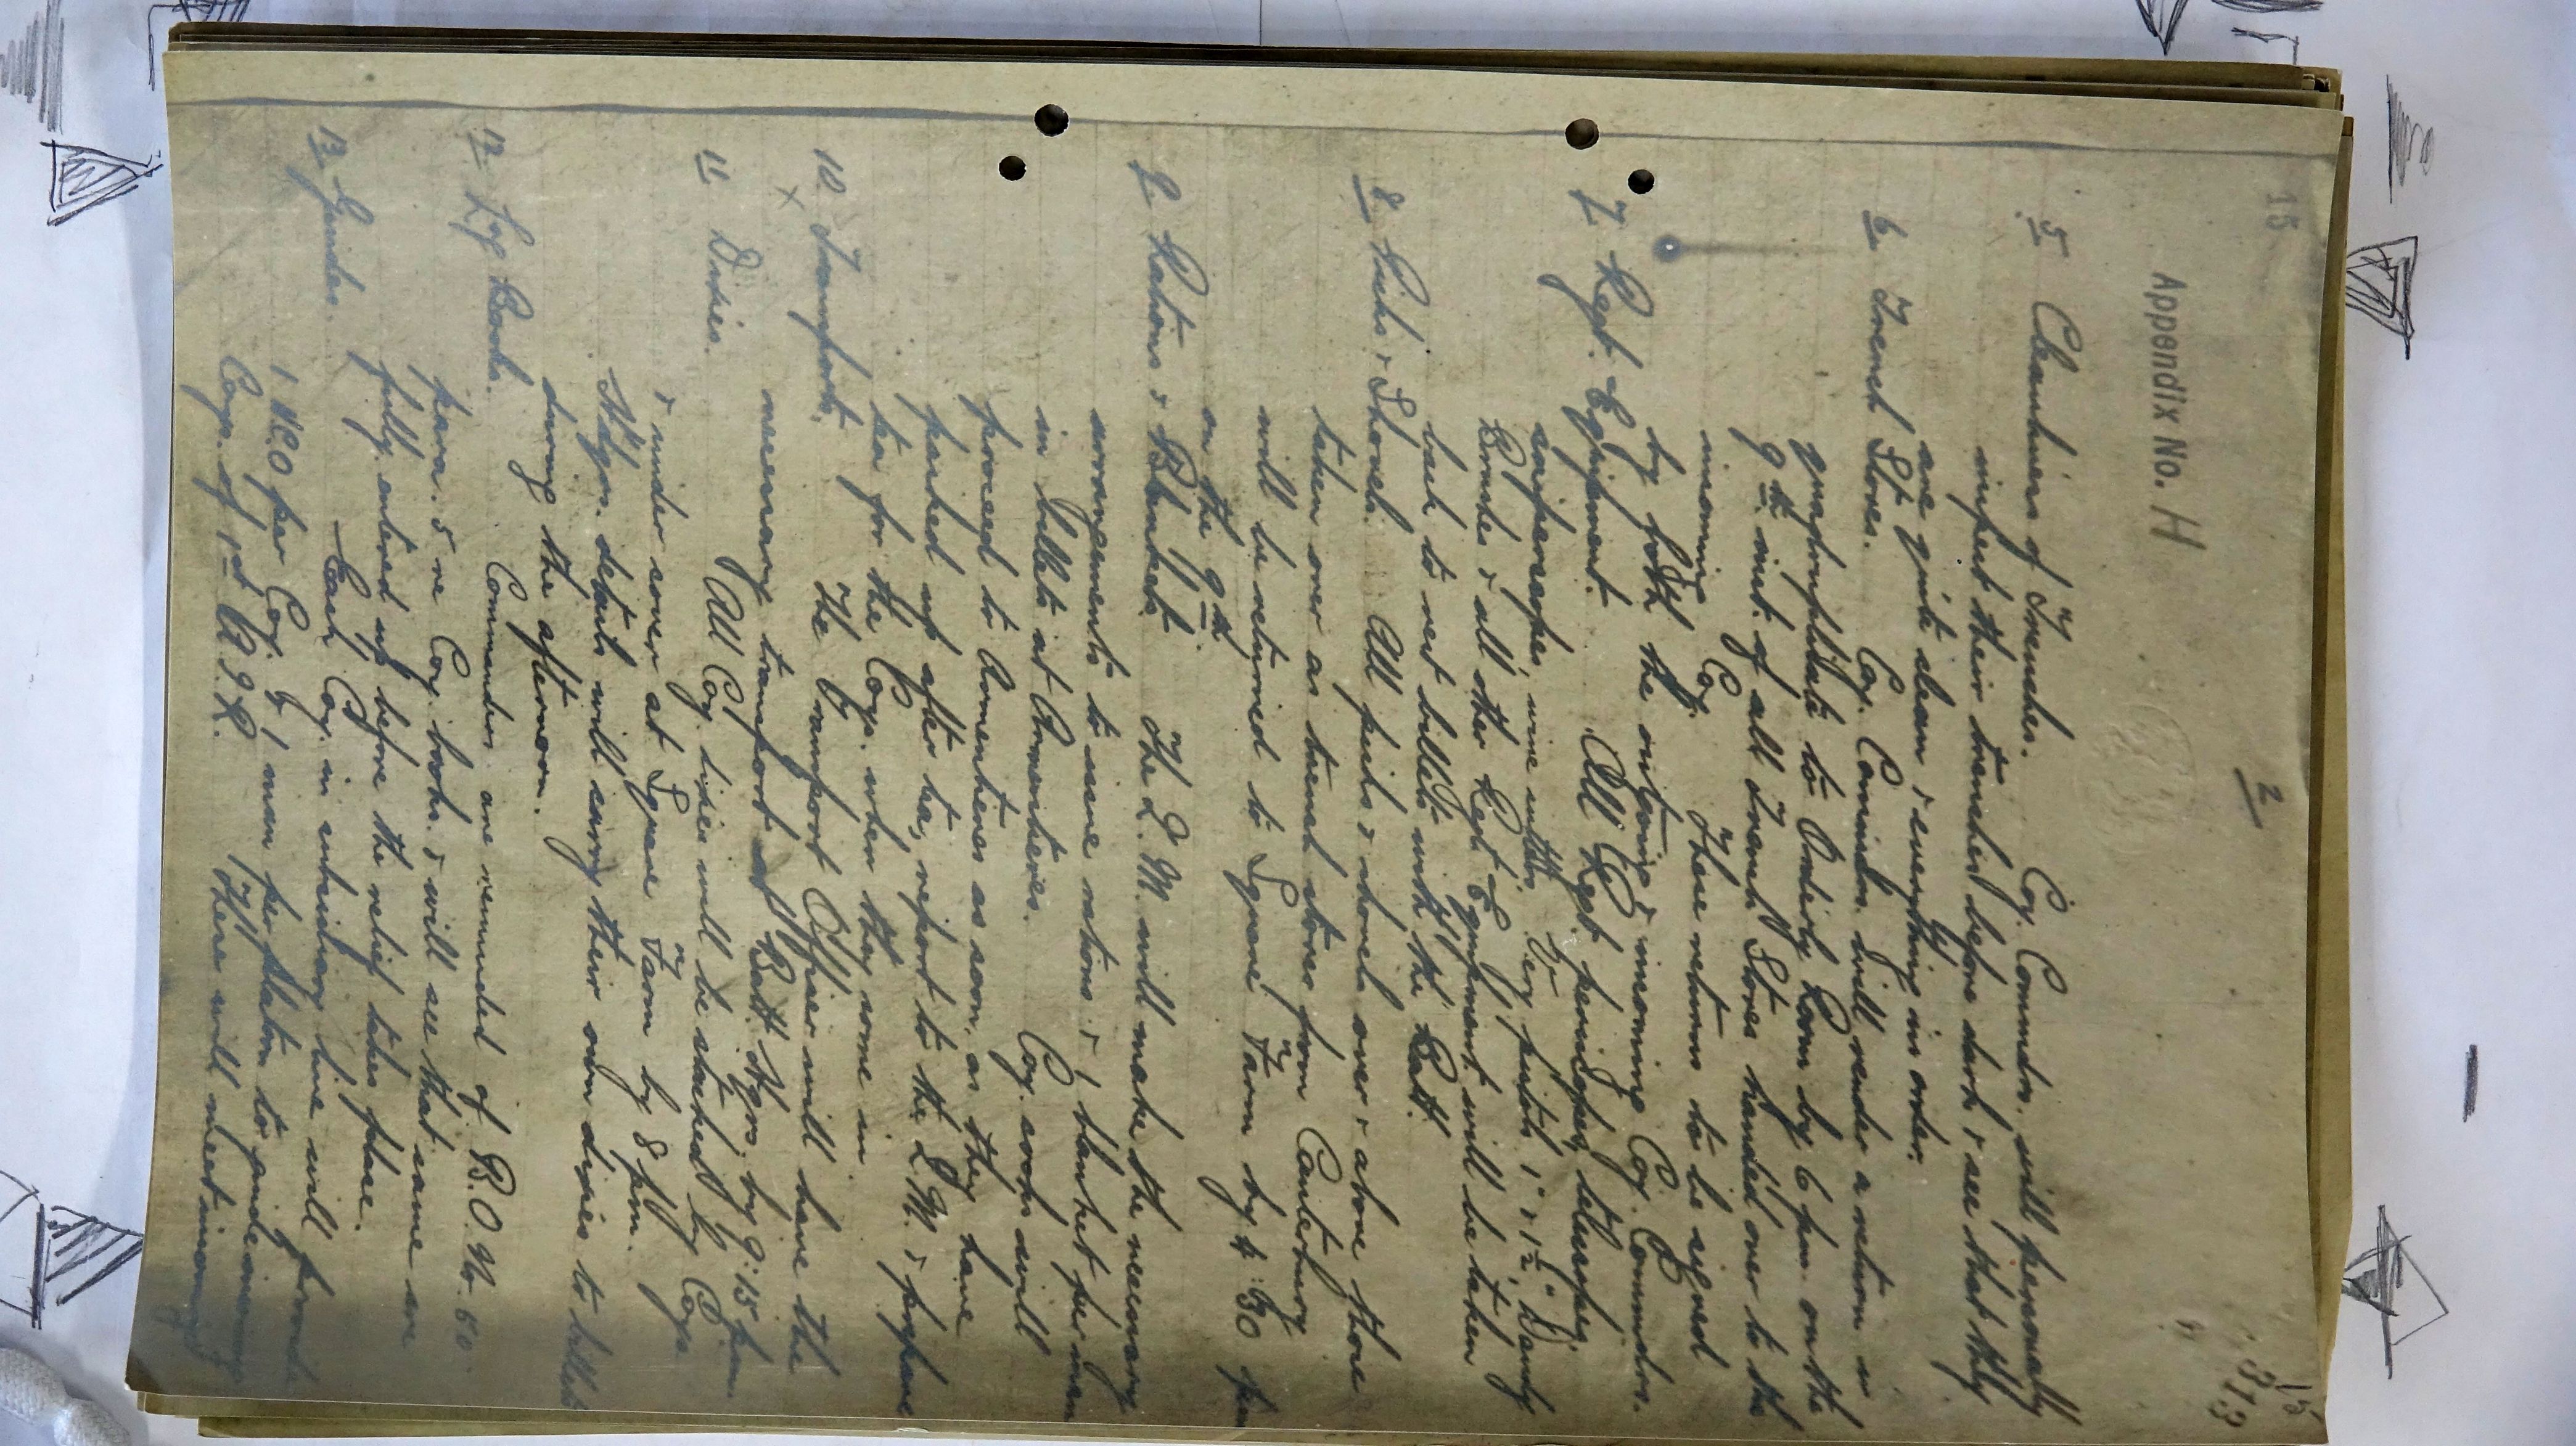 15
2
15
313
Appendix No. H
5 Cleanliness of Trenches. Coy. Commdrs. will personally
inspect their trenches before dark & see that they
are quite clean & everything in order.
6 Trench Stores. Coy. Commdrs. will render a return in
quadruplicate to Orderly Room by 6 pm. on the
9th inst. of all Trench Stores handed over to the
incoming Coy. These returns to be signed
by both the outgoing & incoming Coy. Commdrs.
7 Regt. Equipment. All Regt. periscopes, telescopes,
wire cutters, Very pistols 1" & 1½",
Bombs & all other Regt Equipment will be taken
back to rest billets with the Batt.
8 Picks & Shovels. All picks & shovels over & above those
taken over as trench stores from Canterbury
will be returned to Square Farm by 4.30 pm
on the 9th.
9 Rations & Blankets The Q.M. will make the necessary
arrangements to issue rations & 1 blanket per man
in billets at Armentieres. Coy. cooks will
proceed to Armentieres as soon as they have
packed up after tea, report to the Q.M. & prepare
tea for the Coys. when they come in
10 Transport. The Transport Officer will have the
x
necessary transport at Batt. Hqrs. by 9.15 pm.
11 Dixies. All Coy. dixies will be stacked by Coys
& under cover at Square Farm by 8 pm.
Hdqrs. details will carry their own dixies to billets
during the afternoon.
12 Log Books. Commanders are reminded of B.O. No. 60.
para. 5 re Coy. books. & will see that same are
fully entered up before the relief takes place.
13 Guides. Each Coy. in subsidiary line will provide
1 NCO per Coy. & 1 man per platoon to guide incoming
Coys. of 1st A.I.R. These will meet incoming